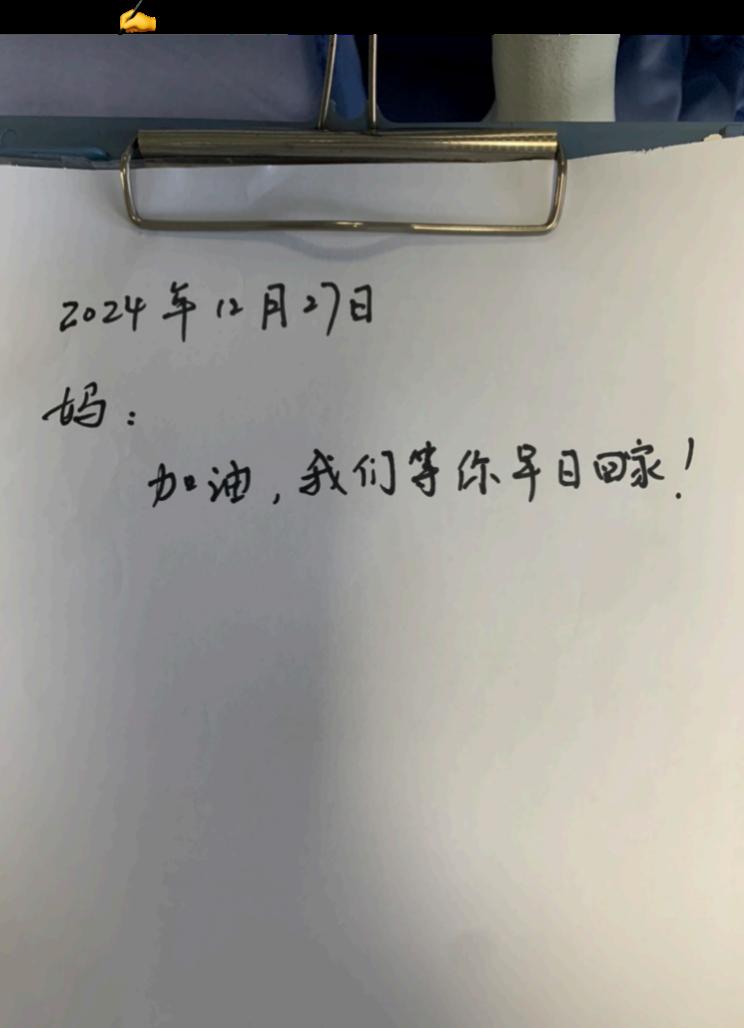 2024年12月27日
妈：
加油，我们等你早日回家！